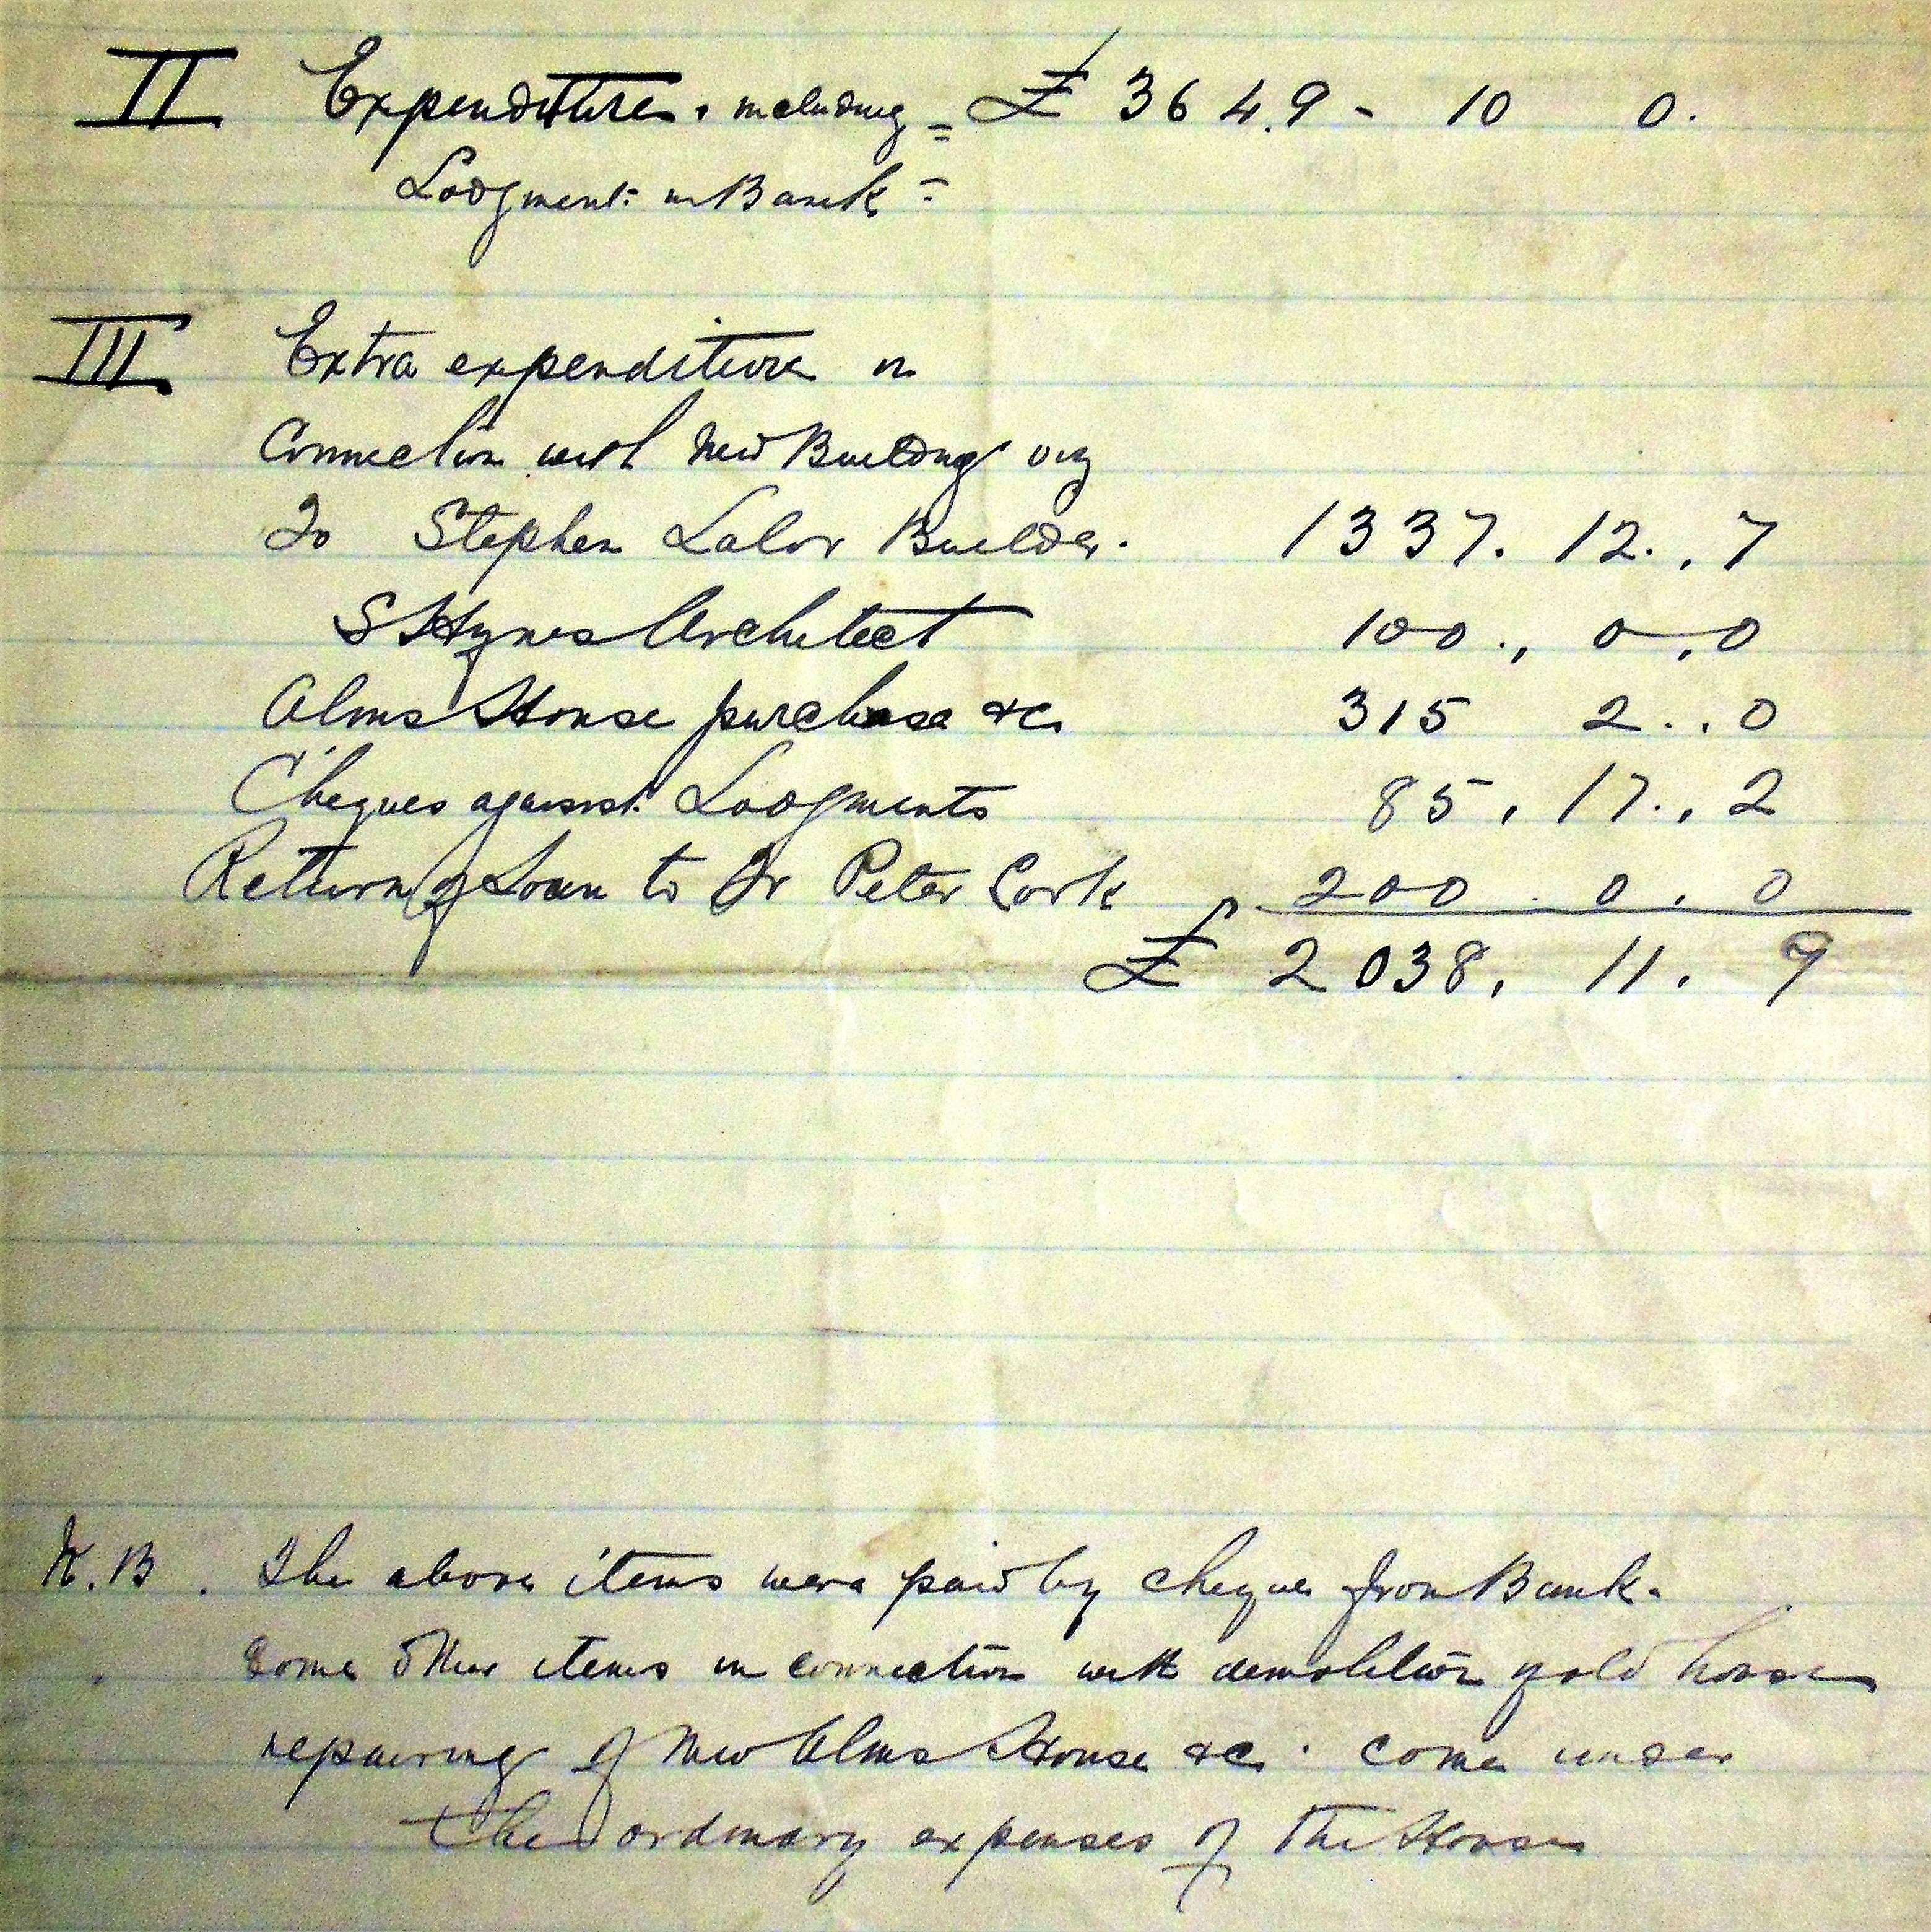 II Expenditure, including = £ 3649 - 10 0.
Lodgment in Bank =
III Extra expenditure in
Connection with New Building viz
To Stephen Lalor Builder. 1337. 12. , 7
S Hynes Architect 100 . , 0 , 0
Alms House purchase &c 315 2 . . 0
Cheques against Lodgments 85 , 17 . , 2
Return of Loan to Fr Peter Cork 200 . 0 , 0
£ 2038, 11. 9
N.B. The above items were paid by cheque from Bank.
Some other items in connection with demolition of old house
repairing of New Alms House &c. come under
the ordinary expenses of the House